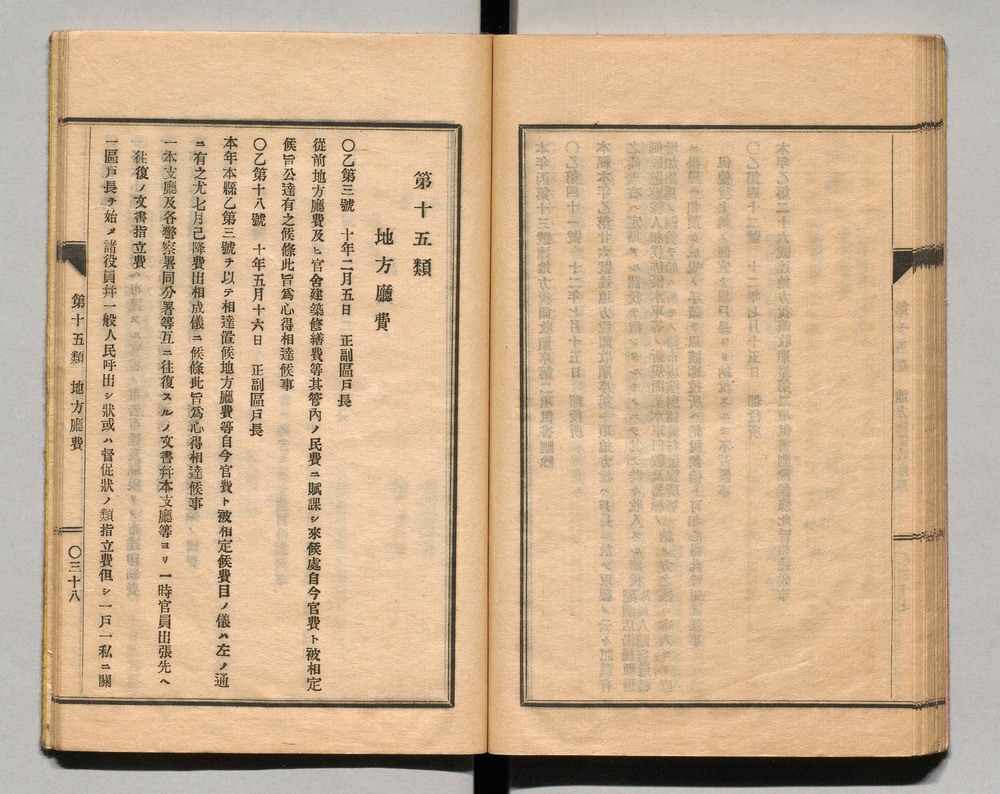 第十五類
地方廳費
〇乙第三號　十年二月五日　正副區戶長
從前地方廳費及ヒ官舍建築修繕費等其管內ノ民費ニ賦課シ來候處自今官費ト被相定
候旨公達有之候條此旨爲心得相達候事
〇乙第十八號　十年五月十六日　正副區戶長
本年本縣乙第三號ヲ以テ相達置候地方廳費等自今官費ト被相定候費目ノ儀ハ左ノ通
ニ有之尤七月已降費出相成儀ニ候條此旨爲心得相達候事
一本支廳及各警察署同分署等互ニ往復スルノ文書幷本支廳等ヨリ一時官員出張先ヘ
往復ノ文書指立費
一區戶長ヲ始メ諸役員幷一般人民呼出シ狀或ハ督促狀ノ類指立費但シ一戶一私ニ關
第十五類　地方廳費
〇三十八